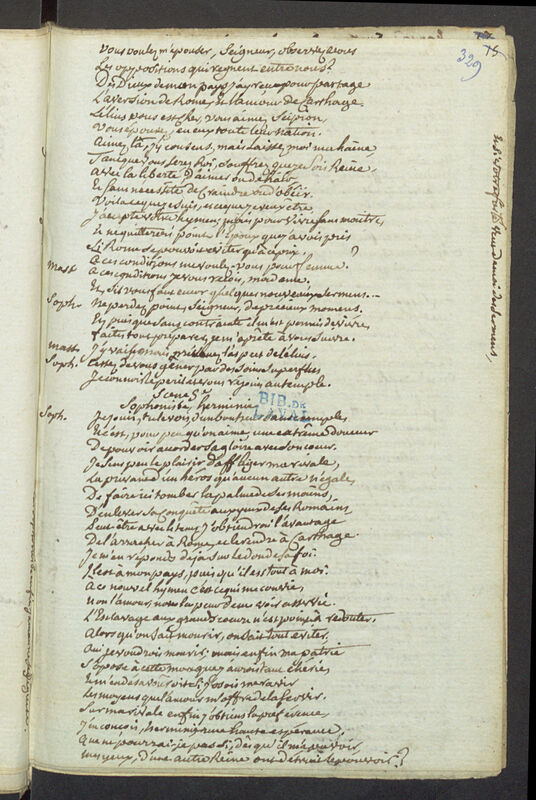 329
Vous voulez m'épouser, Seigneur, observez vous
Les oppositions qui regnent entre nous?
Des Dieux de mon pays j'ay reçu pour partage
L'aversion de Rome, et l'amour de Carthage.
Lélius vous est cher, vous aimez Scipion,
Vous épousez en eux toute leur nation.
Aimez la, j'y consens, mais laissez moi ma haine,
Tant que vous serez Roi, souffrez que je sois Reine,
Avec la liberté d'aimer ou de haïr
Et sans necessité de craindre ou d'obéir.
Voila ce que je suis, et ce que je veux être
J'accepte votre hymen, mais pour vivre sans maître,
Et ne quitterois point l'époux que j'avois pris
Si Rome se pouvoit eviter qu'à ce prix.
A ces conditions me voulez-vous pour femme?
Mass. A ces conditions je vous veux, madame.
Et s'il vous faut encor quelques nouveaux sermens...
Soph. Ne perdez point, Seigneur, de précieux momens.
Et puisque sans contrainte il m'est permis de vivre,
Faites tout préparer, je m'aprête à vous suivre.
Mass. J'y vais; mais
Soph. Cessez de vous gêner par des soins superflus
Je connois le péril et vous rejoins au temple.
Scene 5e
Sophonisbe, herminie
BIB. DE LAVAL
Soph.
Et c'est, pour peu qu'on aime, une extrême douceur
De pouvoir acorder sa gloire avec son coeur.
Je sens peu le plaisir d'affliger ma rivale,
La privant d'un héros qu'aucun autre n'égale,
De faire ici tomber la palme de ses mains,
D'enlever sa conquête aux yeux de ses Romains,
Peut-être avec le tems j'obtiendrai l'avantage
De l'arracher à Rome, et le rendre à Carthage
Je m'en réponds déjà sur le don de sa foi.
Il est à mon pays, puis qu'il est tout à moi.
A ce nouvel hymen c'est ce qui me convie,
Non l'amour, non la peur de me voir asservie.
L'Esclavage aux grands coeurs n'est point à redouter.
Alors qu'on sait mourir, on sait tout eviter.
Oui je voudrois mourir; mais enfin ma patrie
S'opose à cette mort que j'aurois tant cherie,
Les moyens que l'amour m'offre de la servir.
Sur ma rivale enfin j'obtiens la préférence,
J'en conçois, herminie, une haute espérance.
Que ne pourrai-je pas si, dès qu'il m'a pu voir
Mes yeux, d'une autre Reine ont détruit le pouvoir?